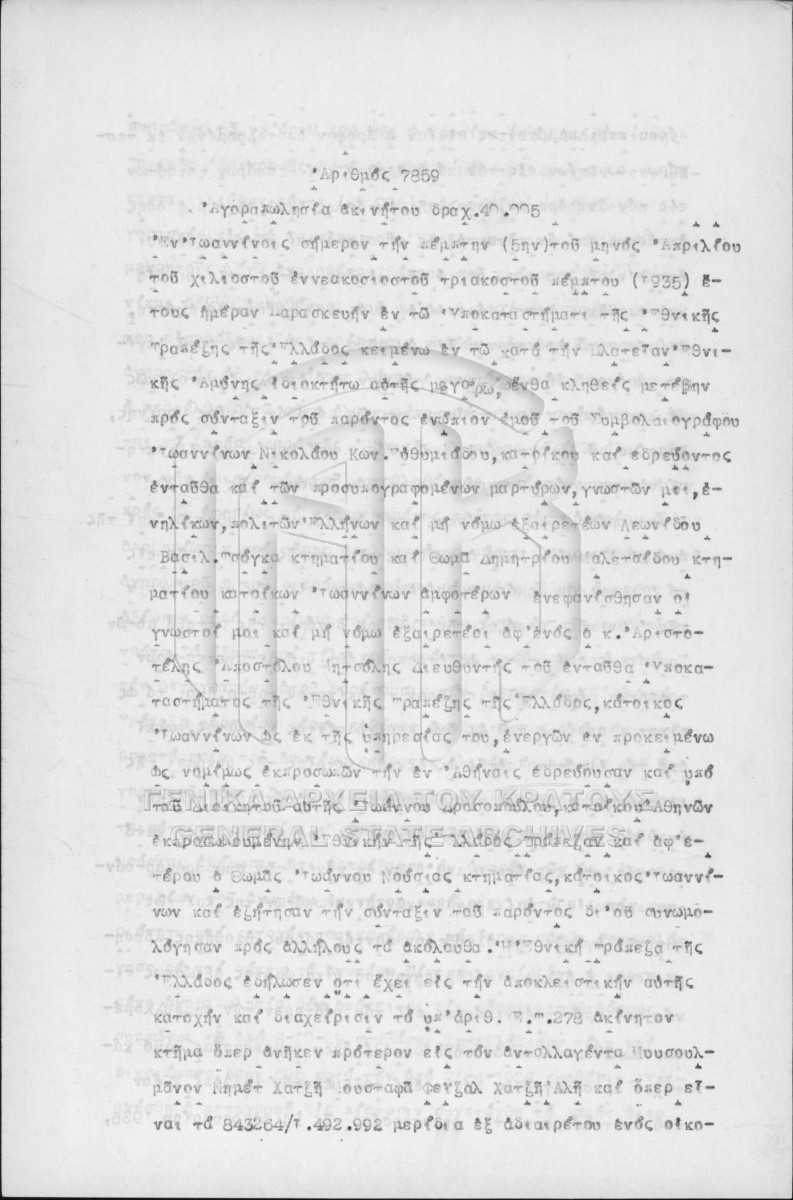 Ἀριθμός 7859
Ἀγοραπωλησία ἀκινήτου δραχ.40.005
Ἐν Ἰωαννίνοις σήμερον τήν πέμπτην (5ην)τοῦ μηνός Ἀπριλίου
τοῦ χιλιοστοῦ ἐννεακοσιοστοῦ τριακοστοῦ πέμπτου (1935) ἔ-
τους ἡμέραν Παρασκευήν ἐν τῶ Ὑποκαταστήματι τῆς Ἐθνικῆς
Τραπέζης τῆς Ἑλλάδος κειμένω ἐν τῶ κατά τήν Πλατεῖαν Ἐθνι-
κῆς Ἀμύνης ἰδιοκτήτω αὐτῆς μεγάρω, ἔνθα κληθείς μετέβην
πρός σύνταξιν τοῦ παρόντος ἐνώπιον ἐμοῦ τοῦ Συμβολαιογράφου
Ἰωαννίνων Νικολάου Κων.Εὐθυμιάδου,κατοίκου καί ἑδρεύοντος
ἐνταῦθα καί τῶν προσυπογραφομένων μαρτύρων,γνωστῶν μοι,ἐ-
νηλίκων,πολιτῶν Ἑλλήνων καί μή νόμω ἐξαιρετέων Λεωνίδου
Βασιλ.Τσόγκα κτηματίου καί Θωμᾶ Δημητρίου Μολετσίδου κτη-
ματίου κατοίκων Ἰωαννίνων ἀμφοτέρων ἐνεφανίσθησαν οἱ
γνωστοί μοι καί μή νόμω ἐξαιρετέοι ἀφ'ἑνός ὁ κ.Ἀριστο-
τέλης Ἀποστόλου Μητσόλης Διευθυντής τοῦ ἐνταῦθα Ὑποκα-
ταστήματος τῆς Ἐθνικῆς Τραπέζης τῆς Ἑλλάδος,κάτοικος
Ἰωαννίνων ὡς ἐκ τῆς ὑπηρεσίας του,ἐνεργῶν ἐν προκειμένω
ὡς νομίμως ἐκπροσωπῶν τήν ἐν Ἀθήναις ἑδρεύουσαν καί ὑπό
τοῦ Διοικητοῦ αὐτῆς Ἰωάννου Δροσοπούλου,κατοίκου Ἀθηνῶν
ἐκπροσωπουμένην Ἐθνικήν τῆς Ἑλλάδος Τράπεζαν καί ἀφ'ἑ-
τέρου ὁ Θωμᾶς Ἰωάννου Νούσιας κτηματίας,κάτοικος Ἰωαννί-
νων καί ἐζήτησαν τήν σύνταξιν τοῦ παρόντος δι'οὗ συνωμο-
λόγησαν πρός ἀλλήλους τά ἀκόλουθα.Ἡ Ἐθνική Τράπεζα τῆς
Ἑλλάδος ἐδήλωσεν ὅτι ἔχει εἰς τήν ἀποκλειστικήν αὐτῆς
κατοχήν καί διαχείρισιν τό ὑπ'ἀριθ. Ε.Τ.278 ἀκίνητον
κτῆμα ὅπερ ἀνῆκεν πρότερον εἰς τόν ἀνταλλαγέντα Μουσουλ-
μᾶνον Νημέτ Χατζῆ Μουσταφᾶ Φεϋζαλ Χατζῆ Ἀλῆ καί ὅπερ εἶ-
ναι τά 843264/1.492.992 μερίδια ἐξ ἀδιαιρέτου ἑνός οἰκο-
ΓΕΝΙΚΑ ΑΡΧΕΙΑ ΤΟΥ ΚΡΑΤΟΥΣ
GENERAL STATE ARCHIVES